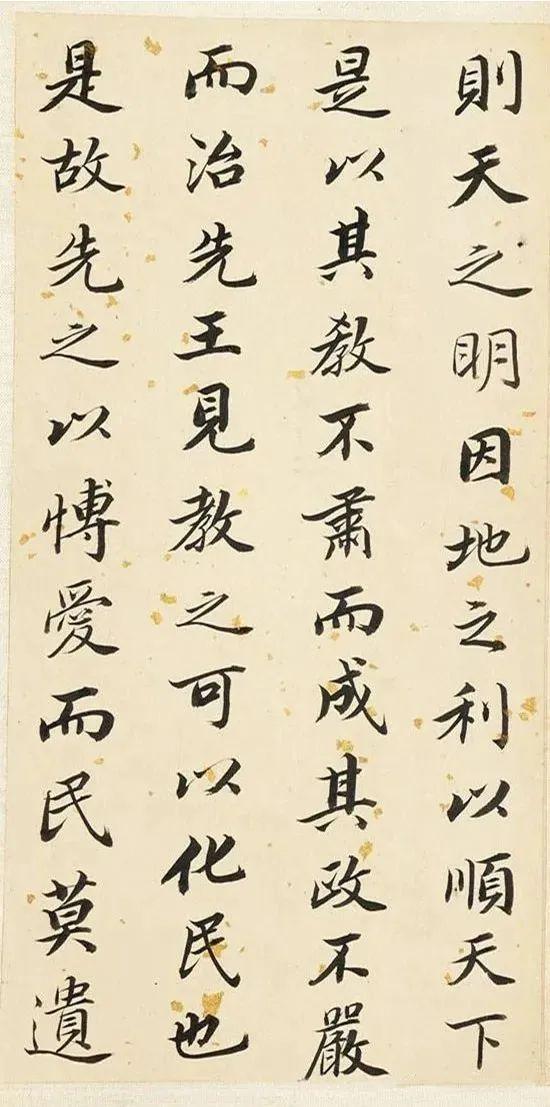 則天之明因地之利以順天下
是以其教不肅而成其政不嚴
而治先王見教之可以化民也
是故先之以博愛而民莫遺